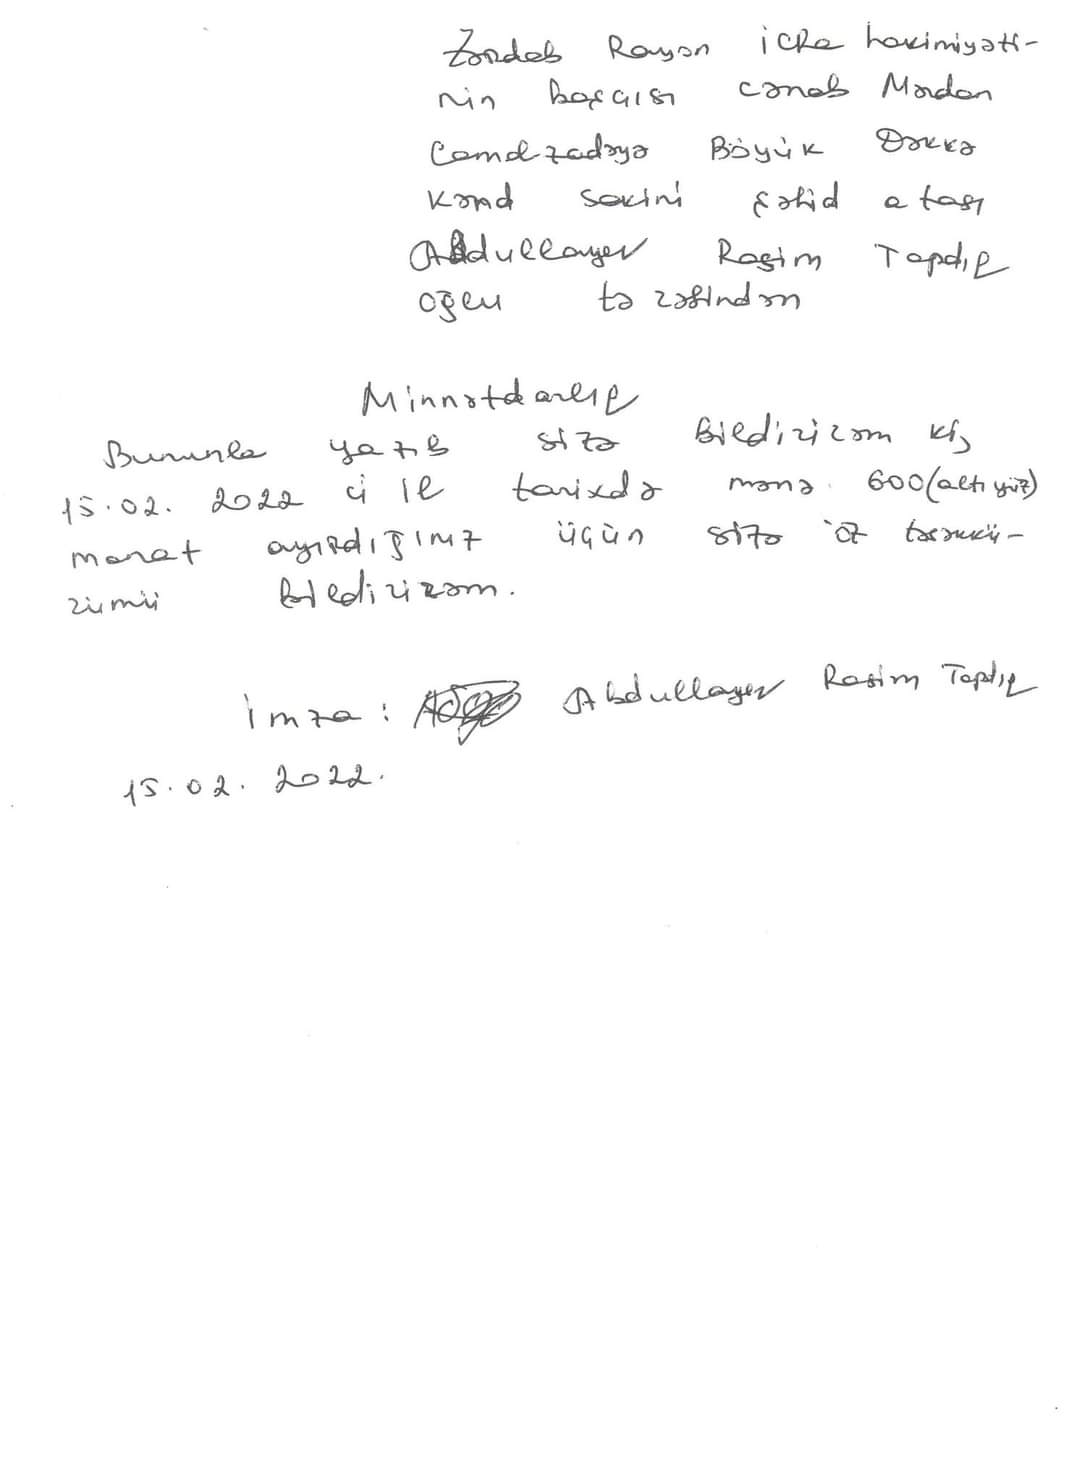 Zərdab Rayon icra hakimiyəti-
nin başçısı cənab Mərdan
Camalzadəyə Böyük Dəkkə
kənd sakini şəhid atası
Abdullayev Rasim Tapdıq
oğlu tərəfindən
Minnətdarlıq
Bununla yazıb sizə bildirirəm ki,
15.02. 2022 ci il tarixdə mənə 600(altı yüz)
manat ayırdığınız üçün sizə öz təşəkkü-
rümü bildirirəm.
İmza: Abdullayev Rasim Tapdıq
15.02. 2022.